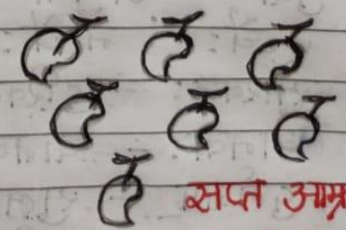 सप्त आम्र